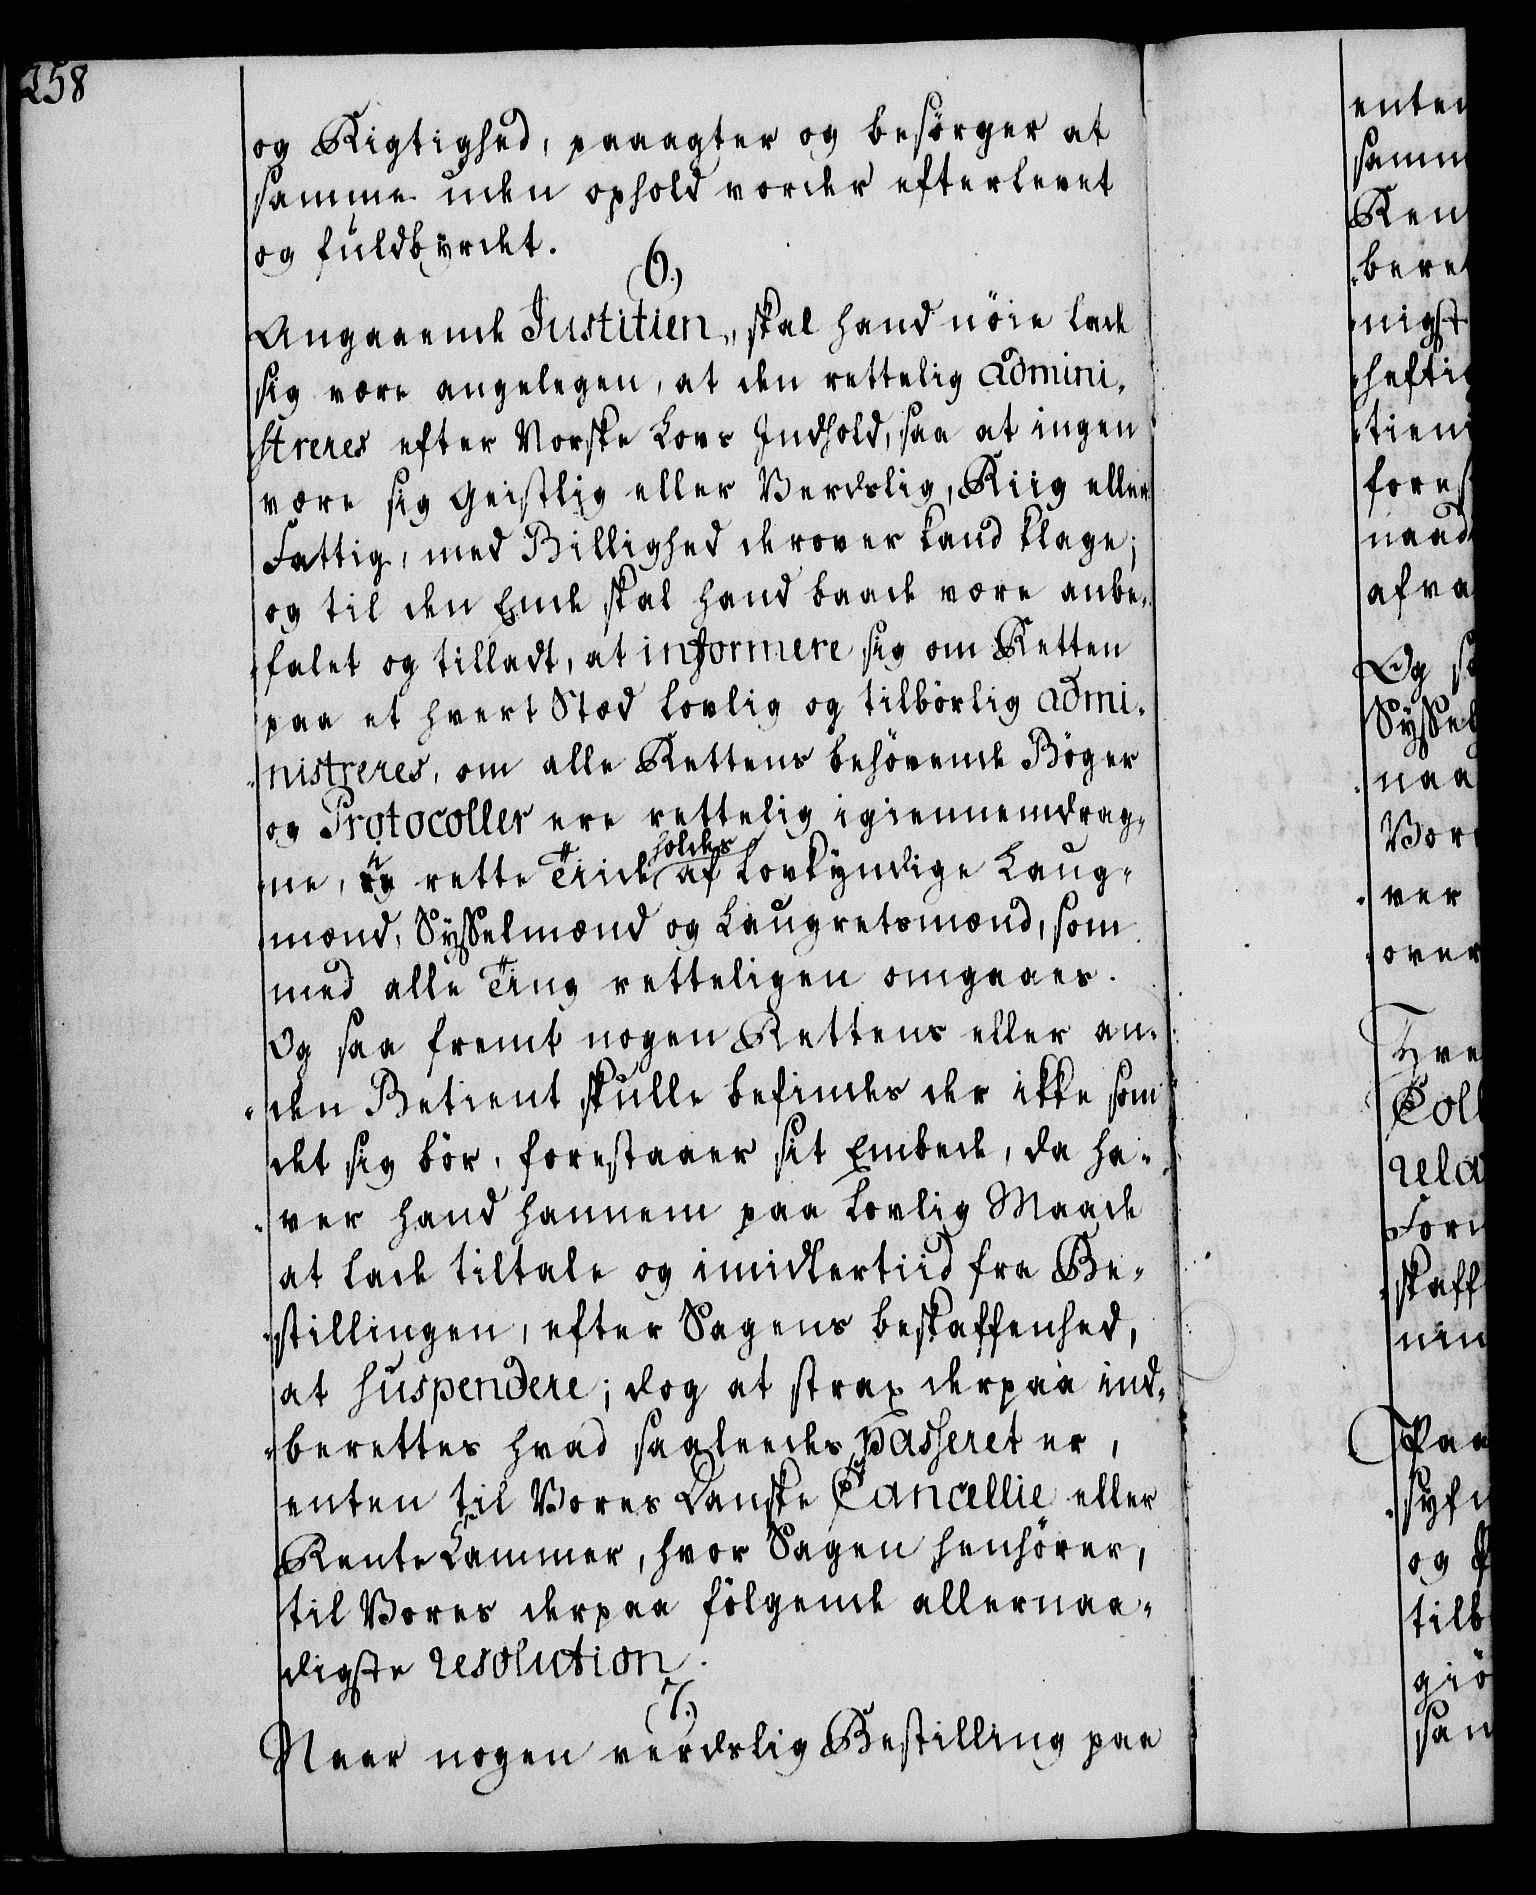 258
og Rigtighed, paaagter og besörger at
samme uden ophold vorder efterlevet
og fuldbyrdet.
6.)
Angaaende Justitien, skal hand nöie lade
sig være angelegen, at den rettelig admini-
streres efter Norske Lovs Indhold, saa at ingen
være sig Geistlig eller Verdslig, Riig eller
Fattig, med Billighed derover kand klage;
og til den Ende skal hand baade være anbe-
falet og tilladt, at informere sig om Retten
paa et hvert Stæd lovlig og tilbörlig admi-
nistreres, om alle Rettens behövende Böger
og Protocoller ere rettelig igiennemdrag-
ne, i rette Tiide holdes af Lovkyndige Laug-
mænd, Sysselmænd og Laugretsmænd, som
med alle Ting retteligen omgaaes.
Og saa fremt nogen Rettens eller an-
den Betient skulle befindes der ikke som
det sig bör, forestaaer sit Embede, da ha-
ver hand hannem paa lovlig Maade
at lade tiltale og imidlertiid fra Be-
stillingen, efter Sagens beskaffenhed,
at suspendere; dog at strax derpaa ind-
berettes hvad saaleedes passeret er,
enten til Vores Danske Cancellie eller
Rente Cammer, hvor Sagen henhörer,
til Vores derpaa fölgende allernaa-
digste resolution.
7.)
Naar nogen verdslig Bestilling paa